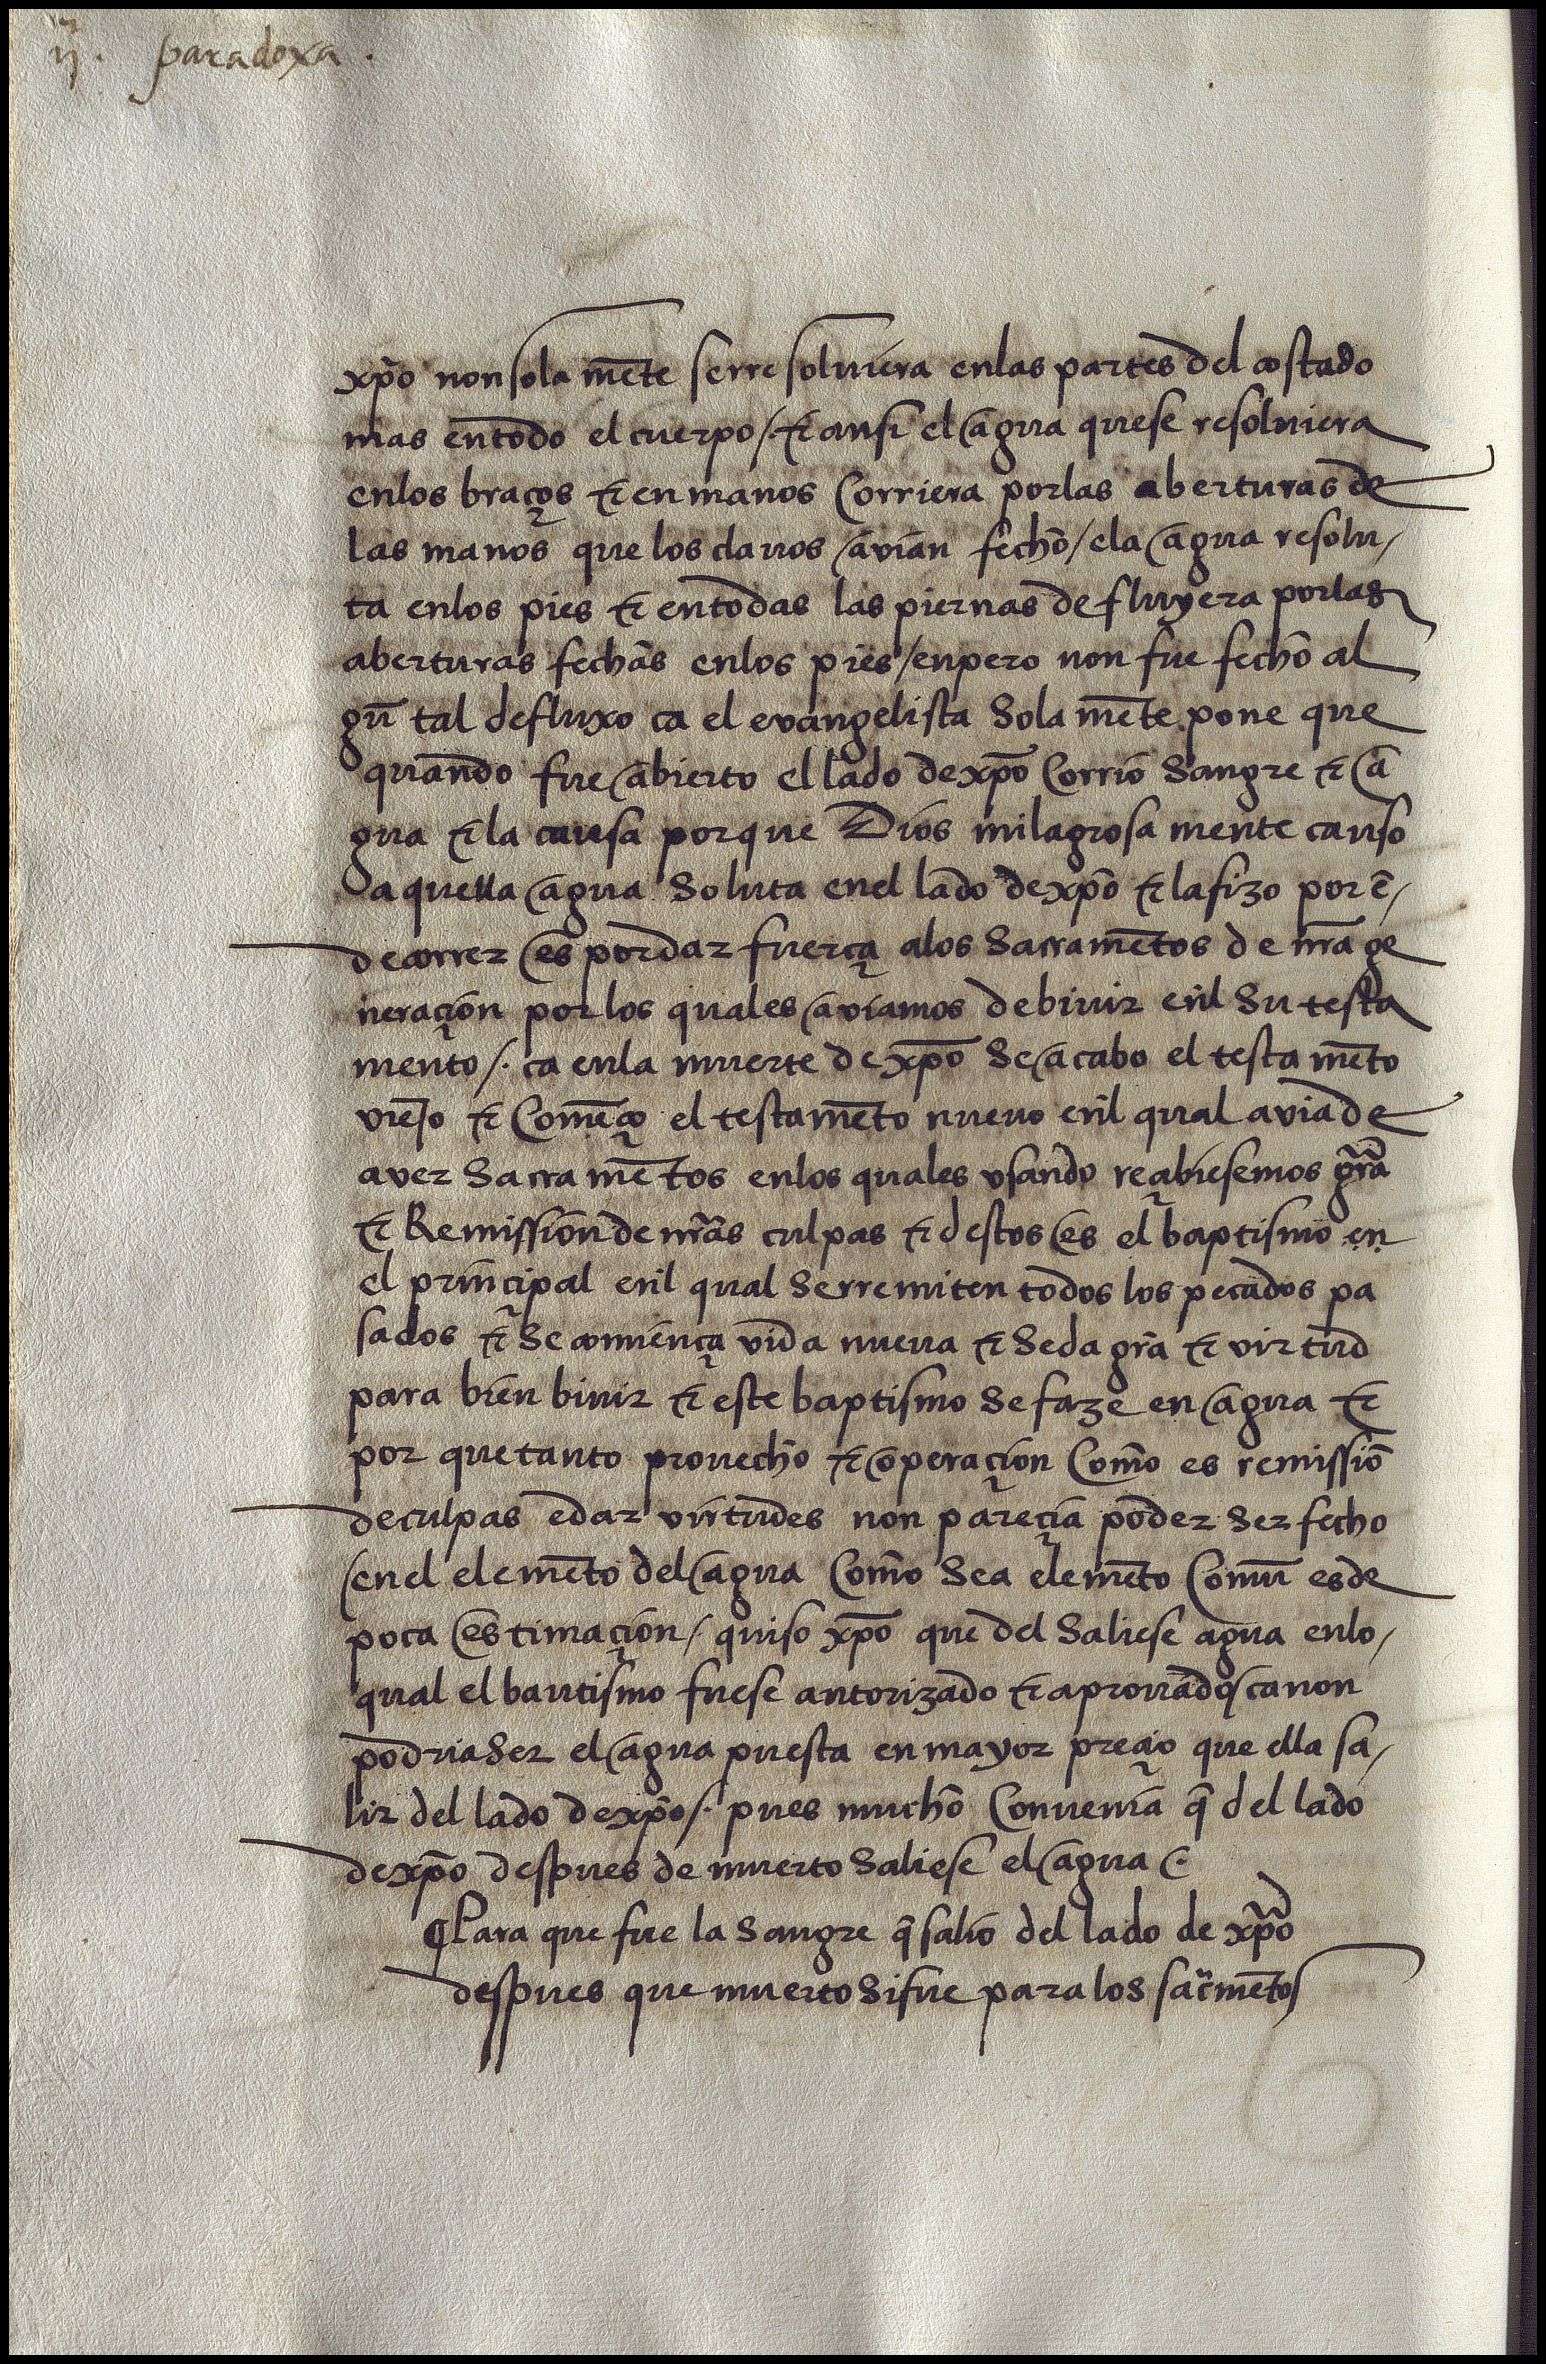 ij. paradoxa.
xp̃o non sola mẽte serre soluiera enlas partes del costado
mas entodo el cuerpo /. ⁊ ansi el agua quese resoluiera
enlos braços ⁊ en manos Corriera porlas aberturas de
las manos que los clauos avian fecho / ela agua resolu /
ta enlos pies ⁊ entodas las piernas defluyera porlas
aberturas fechas enlos pies / enpero non fue fecho al
gũ tal defluxo ca el evangelista Sola mẽte pone que
quando fue abierto el lado dexp̃o Corrio Sangre ⁊ a
gua ⁊ la causa por que Dios milagrosa mente causo
a quella agua Soluta enel lado dexp̃o ⁊ lafizo por ẽ /
de correr es pordar fuerça alos Sacramẽtos de nr̃a ge
neraçion por los quales aviamos debiuir enl Su testa
mento /. ca enla muerte de xp̃o Se acabo el testa mẽto
viejo ⁊ Comẽço el testamẽto nueuo enl qual aviade
aver Sacra mẽtos enlos quales vsando reçibiesemos gr̃a
⁊ Remission de nr̃as culpas ⁊ destos es el baptismo en
el prinçipal enl qual Serremiten todos los pecados pa
sados ⁊ Se comiença vida nueua ⁊ Seda gr̃a ⁊ virtud
para bien biuir ⁊ este baptismo Se faze en agua ⁊
por que tanto prouecho ⁊ operaçion Como es remissiõ
deculpas edar virtudes non pareçia poder Ser fecho
enel elemẽto del agua Como Sea elemẽto Comũ esde
poca estimaçion / quiso xp̃o que del Saliese agua enlo /
qual el bautismo fuese autorizado ⁊ aprouado / ca non
podria Ser el agua puesta en mayor preçio que ella sa /
lir del lado dexp̃o /. pues mucho Conuenia q̃ del lado
dexp̃o despues de muerto Saliese el agua /.
¶ Para que fue la Sangre q̃ salio del lado de xp̃o
despues que muerto Si fue para los sac̃rmẽtos